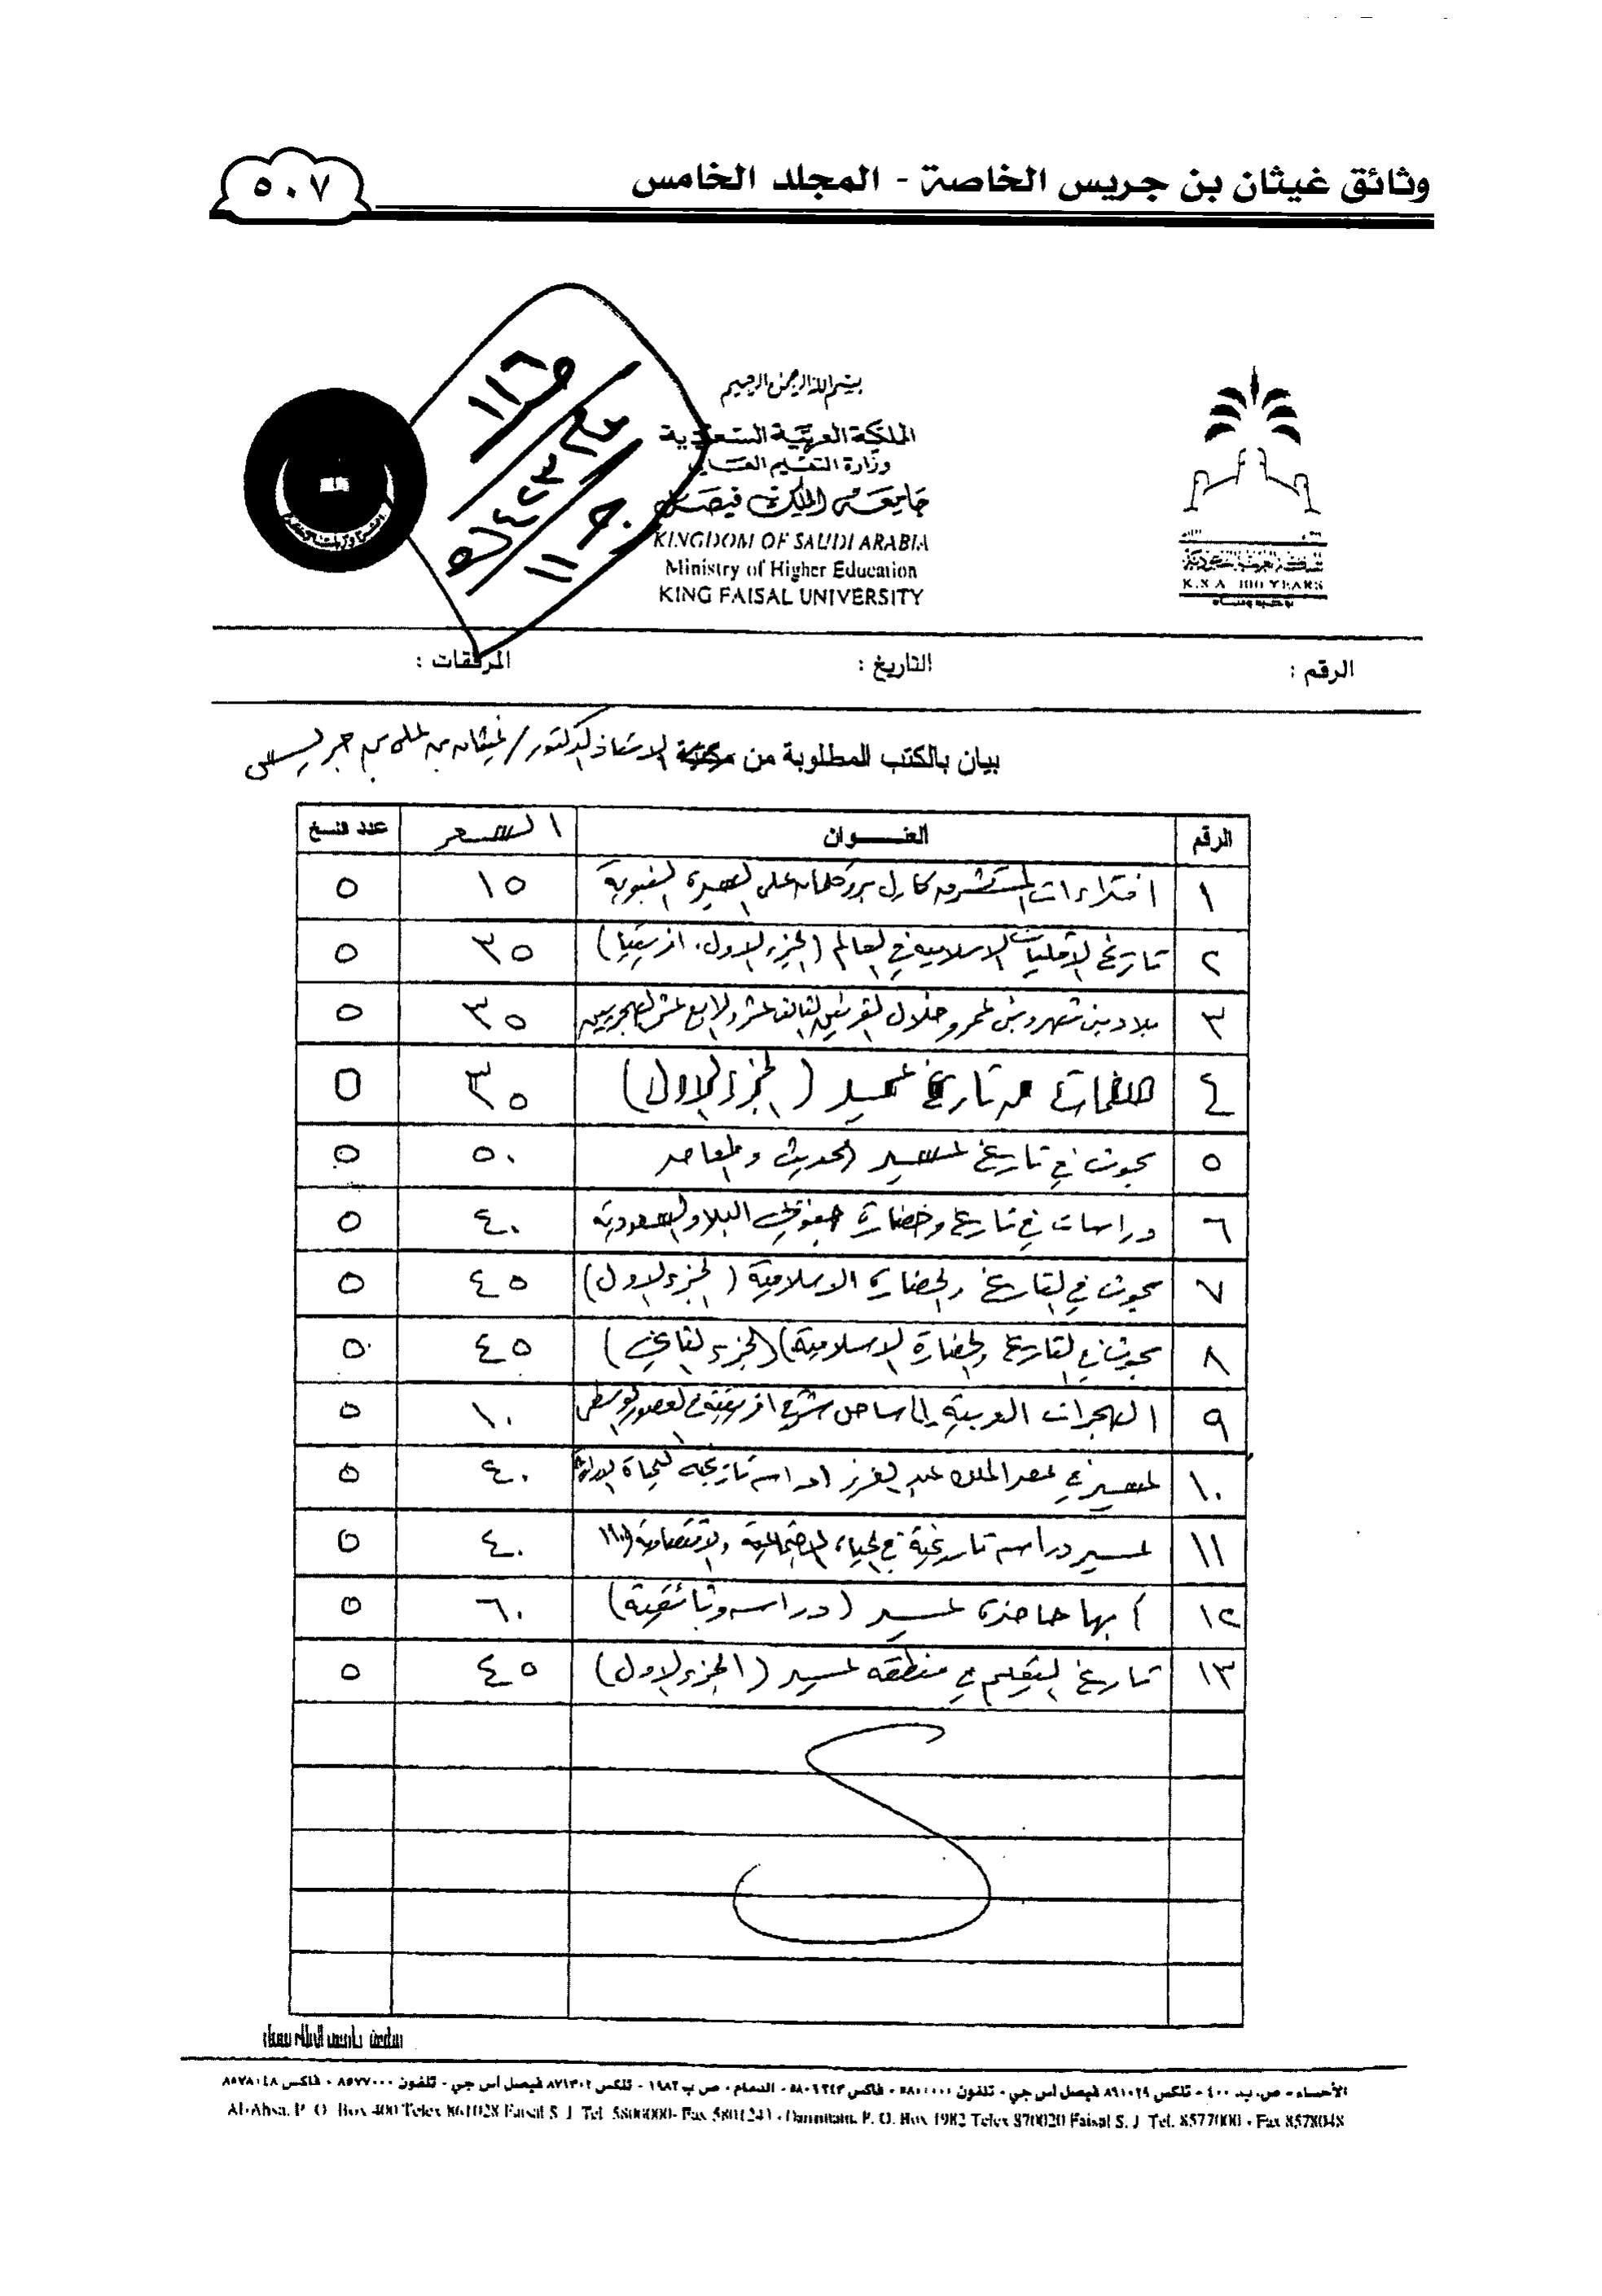 وثائق غيثان بن جريس الخاصة - المجلد الخامس
٥٠٧
بسم الله الرحمن الرحيم
المملكة العربية السعودية
وزارة التعليم العالي
جامعة الملك فيصل
KINGDOM OF SAUDI ARABIA
Ministry of Higher Education
KING FAISAL UNIVERSITY
K.S.A 100 YEARS
الرقم : التاريخ : المرفقات :
بيان بالكتب المطلوبة من الاستاذ الدكتور / غيثان بن علي بن جريس
الرقم العنوان السعر عدد النسخ
١ افتراءات المستشرق كارل بروكلمان على السيرة النبوية ١٥ ٥
٢ تاريخ الأقليات الاسلامية في العالم (الجزء الاول، افريقيا) ٣٥ ٥
٣ بلاد بني شهر وبني عمرو خلال القرنين الثالث عشر والرابع عشر الهجريين ٣٥ ٥
٤ صفحات من تاريخ عسير (الجزء الاول) ٣٥ ٥
٥ بحوث في تاريخ عسير الحديث والمعاصر ٥٠ ٥
٦ دراسات في تاريخ وحضارة جنوبي البلاد السعودية ٤٠ ٥
٧ بحوث في التاريخ والحضارة الاسلامية (الجزء الاول) ٤٥ ٥
٨ بحوث في التاريخ والحضارة الاسلامية (الجزء الثاني) ٤٥ ٥
٩ الهجرات العربية إلى ساحل شرق افريقية في العصور الوسطى ١٠ ٥
١٠ عسير في عصر الملك عبد العزيز (دراسه تاريخه للحياة ٤٠ ٥
١١ عسير دراسه تاريخية في الحياة الاجتماعية والاقتصادية ٤٠ ٥
١٢ أبها حاضرة عسير (دراسه وثائقية) ٦٠ ٥
١٣ تاريخ التعليم في منطقه عسير (الجزء الاول) ٤٥ ٥
مطابع جامعة الملك فيصل
الأحساء - ص.ب ٤٠٠ - تلكس فيصل أس جي - تلفون ٥٨٠٠٠٠٠ - فاكس - الدمام - ص ب ١٩٨٢ - تلكس فيصل أس جي - تلفون ٨٥٧٧٠٠٠ - فاكس ٨٥٧٨٠٤٨
Al-Ahsa. P. O. Box 400 Telex 861028 Faisal S. J. Tel. 5800000- Fax 5801243 - Dammam. P. O. Box 1982 Telex 870020 Faisal S. J Tel. 8577000 - Fax 8578048